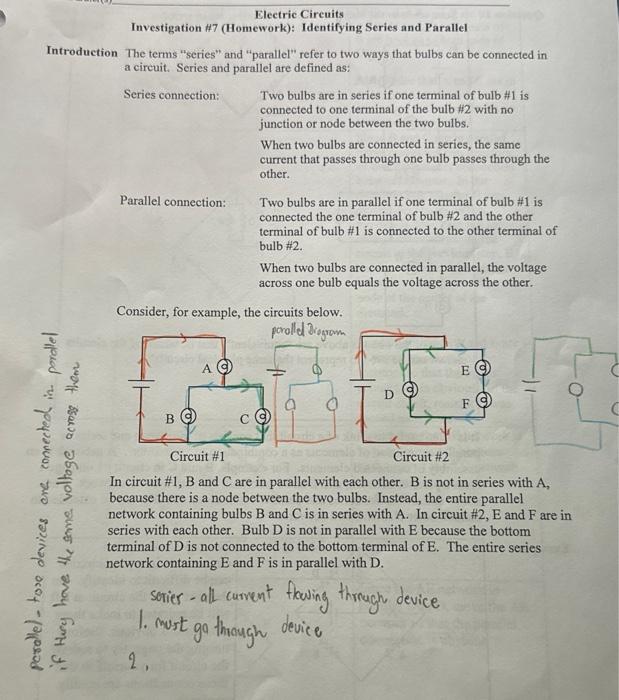 Electric Circuits
Investigation #7 (Homework): Identifying Series and Parallel
Introduction The terms "series" and "parallel" refer to two ways that bulbs can be connected in
a circuit. Series and parallel are defined as:
Series connection: Two bulbs are in series if one terminal of bulb #1 is
connected to one terminal of the bulb #2 with no
junction or node between the two bulbs.
When two bulbs are connected in series, the same
current that passes through one bulb passes through the
other.
Parallel connection: Two bulbs are in parallel if one terminal of bulb #1 is
connected the one terminal of bulb #2 and the other
terminal of bulb #1 is connected to the other terminal of
bulb #2.
When two bulbs are connected in parallel, the voltage
across one bulb equals the voltage across the other.
Consider, for example, the circuits below.
parallel diagram
A
B
C
D
E
F
Circuit #1
Circuit #2
In circuit #1, B and C are in parallel with each other. B is not in series with A,
because there is a node between the two bulbs. Instead, the entire parallel
network containing bulbs B and C is in series with A. In circuit #2, E and F are in
series with each other. Bulb D is not in parallel with E because the bottom
terminal of D is not connected to the bottom terminal of E. The entire series
network containing E and F is in parallel with D.
series - all current flowing through device
1. must go through device
2.
parallel - devices are connected in parallel
if they have the same voltage across them